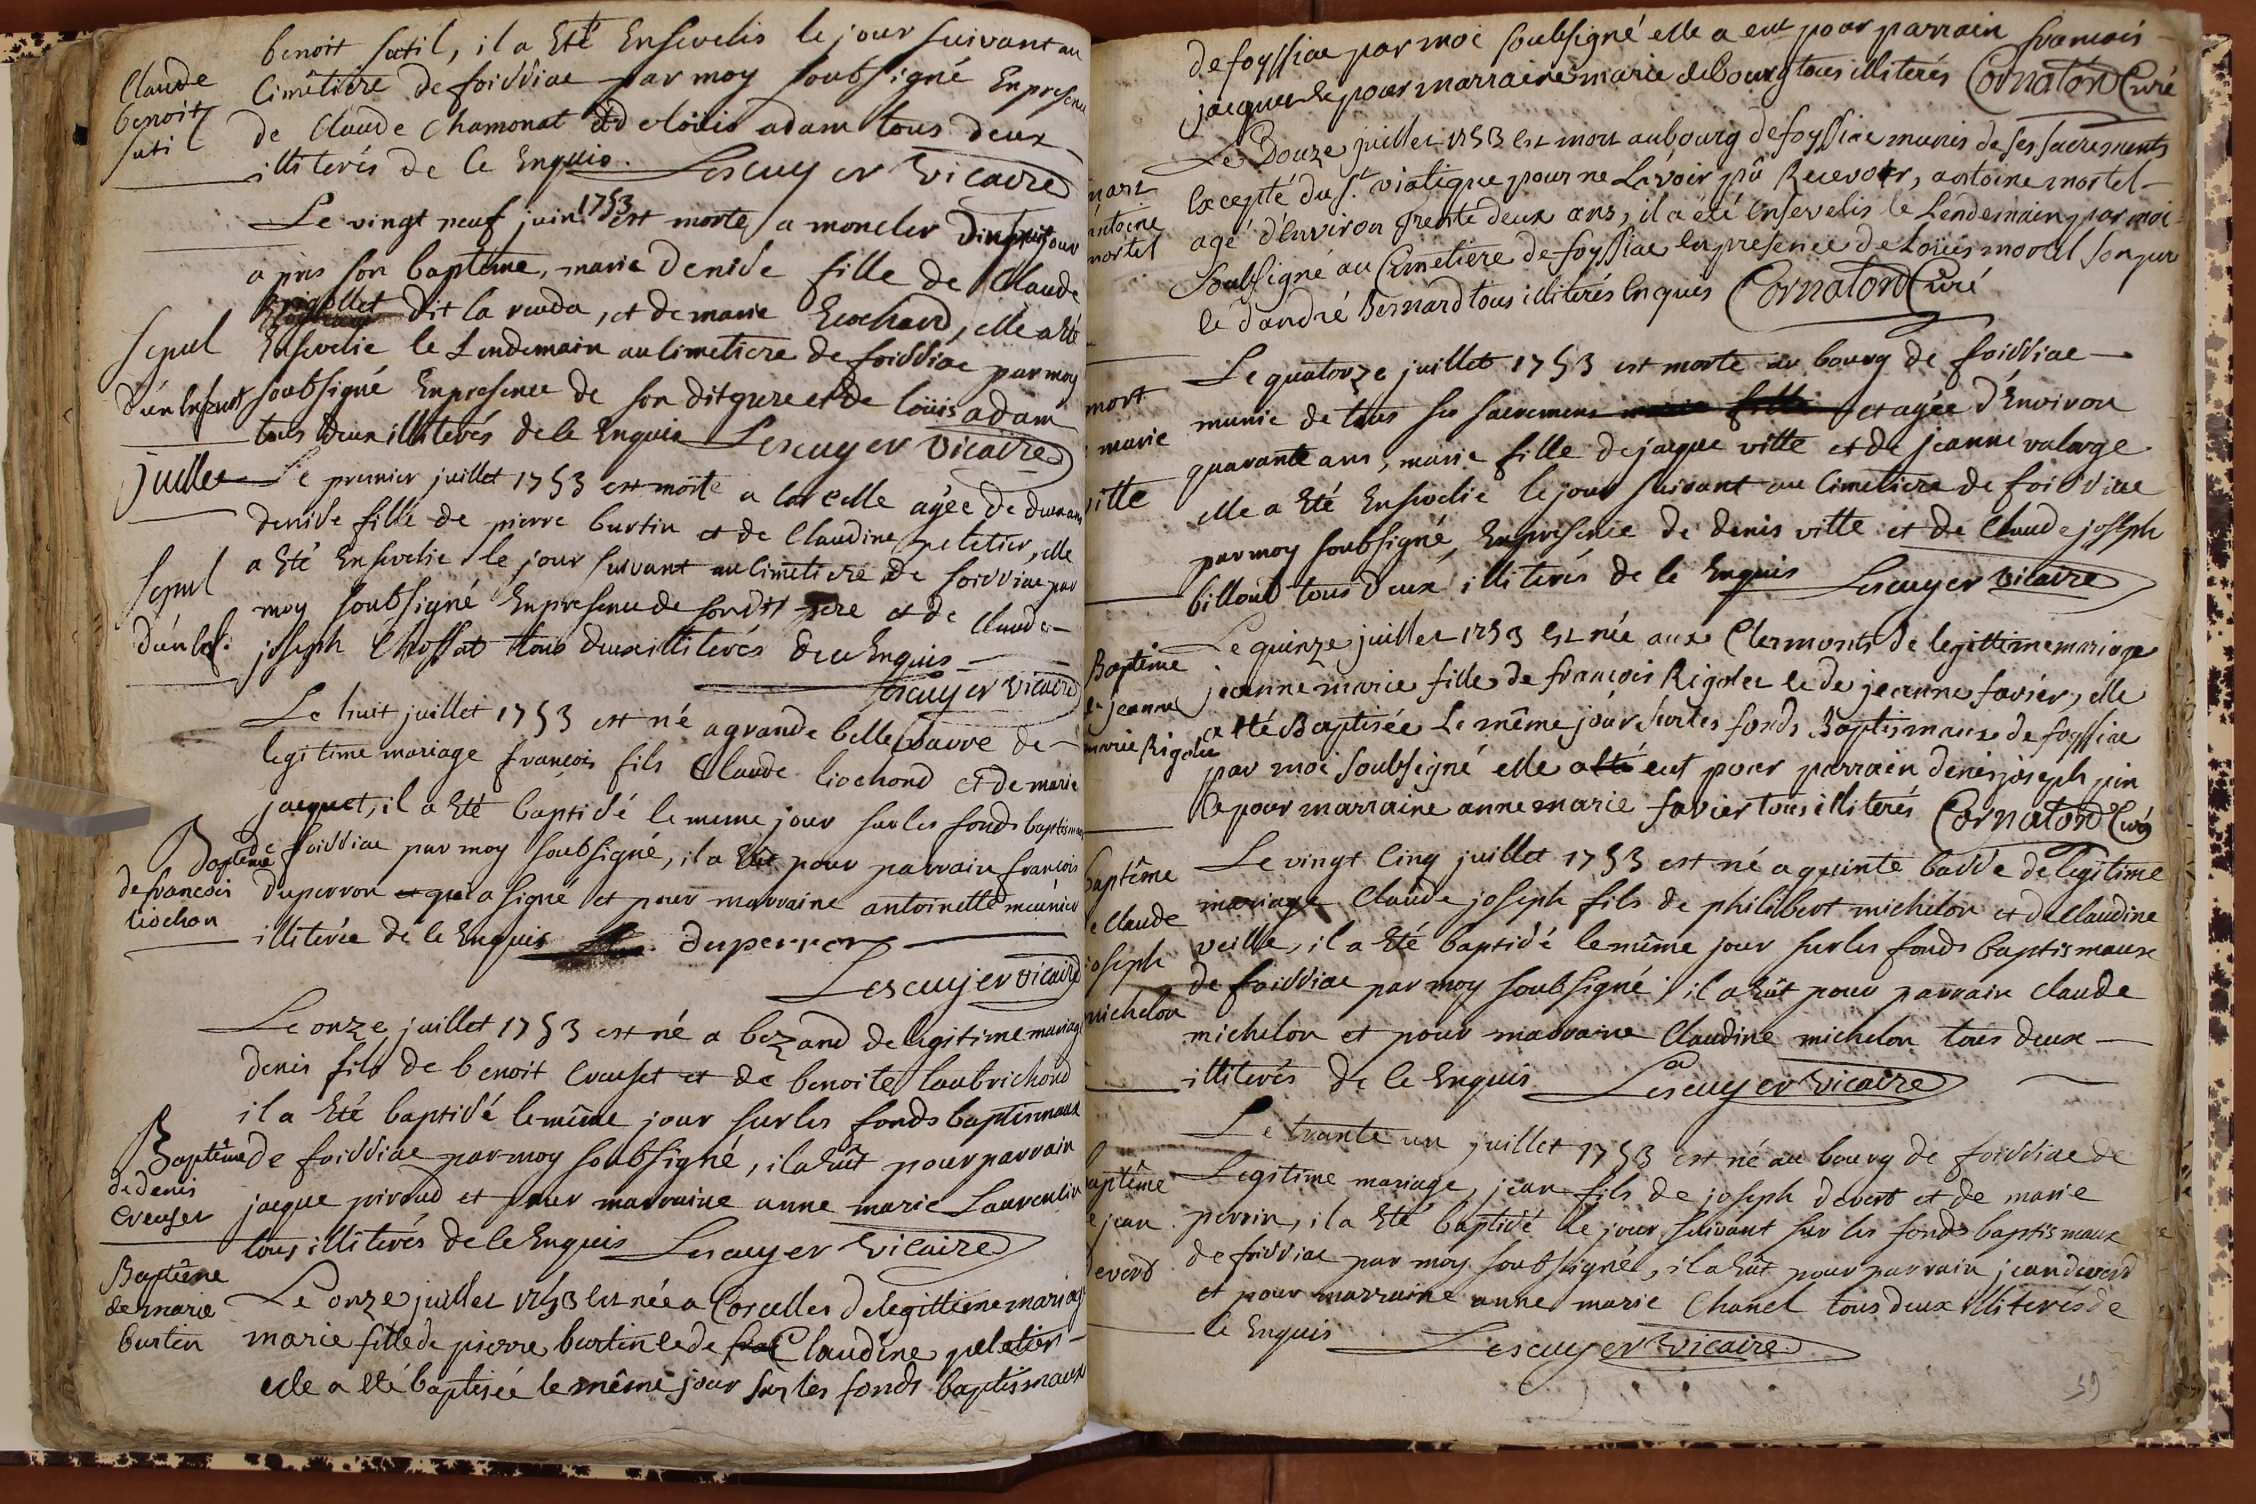 benoit sutil, il a Eté Ensevelis le jour suivant au
Claude
benoit
sutil
Cimêtiére de foissiac par moy soubsigné Enpresence
de Claude Chamonat et de loüis adam tous deux
illiterés de ce Enquis. Lescuyer vicaire
Le vingt neuf juin 1753 est morte a moncler
apres son baptême, marie denise fille de Claude
Rigollet dit la ruada, et de marie Liochard, elle a Eté
Sepul
d'un Enfant
Ensevelie le Lendemain au Cimetiere de foissiac par moy
soubsigné Enpresence de son dit pere et de loüis adam
tous deux illiterés de ce Enquis Lescuyer vicaire
juillet
Le premier juillet 1753 est morte a Corcelle agée de deux ans
denise fille de pierre burtin et de Claudine peletier, elle
Sepul
d'un Enf:
a Eté Ensevelie le jour suivant au Cimetiere de foissiac par
moy soubsigné Enpresence de son dit pere et de Claude
joseph Chossat tous deux illiterés de ce Enquis
Lescuyer vicaire
Le huit juillet 1753 est né a grande belle de
legitime mariage françois fils Claude liochond et de marie
jaquet, il a Eté baptisé le meme jour sur les fonds baptismaux
Baptême
de françois
liochon
de foissiac par moy soubsigné, il a Eut pour parrain françois
duperron qui a signé et pour marraine antoinette meunier
illiterée de ce Enquis duperron
Lescuyer vicaire
Le onze juillet 1753 est né a bezand de legitime mariage
denis fils de benoit Creuset et de benoite laubrichond
il a Eté baptisé le même jour sur les fonds baptismaux
Baptême
de denis
Creuser
de foissiac par moy soubsigné, il a Eût pour parrain
jacque piroud et pour marraine anne marie Laurencin
tous illiterés de ce Enquis Lescuyer vicaire
Baptême
de marie
burtin
Le onze juillet 1753 Est née a Corcelles de legittime mariage
marie fille de pierre burtin et de Claudine peletier
elle a été baptisée le même jour sur les fonds baptismaux
de foyssiac par moi soubsigné elle a eut pour parrain francois
jacquer et pour marraine marie debourg tous illiterés Cornaton Curé
Le Douze juillet 1753 Est mort au bourg de foyssiac munis de ses sacrements
mort
antoine
mortel
Excepté du St. viatique pour ne L'avoir pû Recevoir, antoine mortel
agé d'Environ trente deux ans, il a été Ensevelis le Lendemain par moi
soubsigné au Cimetiere de foyssiac en presence de Loüis mortel son pere
et d'andré Bernard tous illiterés Enquis Cornaton Curé
Le quatorze juillet 1753 est morte au bourg de foissiac
mort
marie
ville
munie de tous ses sacremens et agée d'Environ
quarante ans, marie fille de jaque ville et de jeanne valorge
elle a Eté Ensevelie le jour suivant au Cimetiere de foissiac
par moy soubsigné, Enpresence de denis ville et de Claude joseph
billoud tous deux illiterés de ce Enquis Lescuyer vicaire
Le quinze juillet 1753 Est née aux Clermonts de legittime mariage
Baptême
de jeanne
marie Rigolet
jeanne marie fille de françois Rigolet et de jeanne favier, elle
a été Baptisée Le même jour sur les fonds Baptismaux de foyssiac
par moi soubsigné elle a eut pour parrain denis joseph pin
et pour marraine anne marie favier tous illiterés Cornaton Curé
Le vingt Cinq juillet 1753 est né a quinte basse de legitime
baptême
de Claude
joseph
michelon
mariage Claude joseph fils de philibert michelon et de Claudine
veille, il a Eté baptisé le même jour sur les fonds baptismaux
de foissiac par moy soubsigné, il a Eût pour parrain Claude
michelon et pour marraine Claudine michelon tous deux
illiterés de ce Enquis Lescuyer vicaire
Le trante un juillet 1753 est né au bourg de foissiac de
baptême
de jean
devert
Legitime mariage, jean fils de joseph devert et de marie
perrin, il a Eté baptisé le jour suivant sur les fonds baptismaux
de foissiac par moy soubsigné, il a Eût pour parrain jean devert
et pour marraine anne marie Chanel tous deux illiterés de
ce Enquis Lescuyer vicaire
59